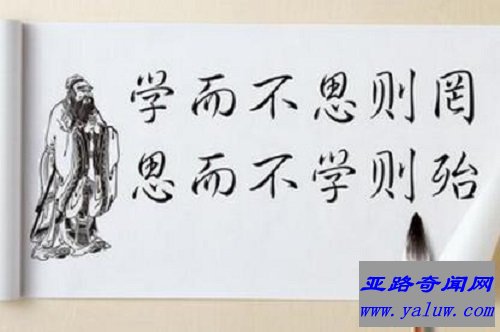 学而不思则罔
思而不学则殆
亚路奇闻网
www.yaluw.com